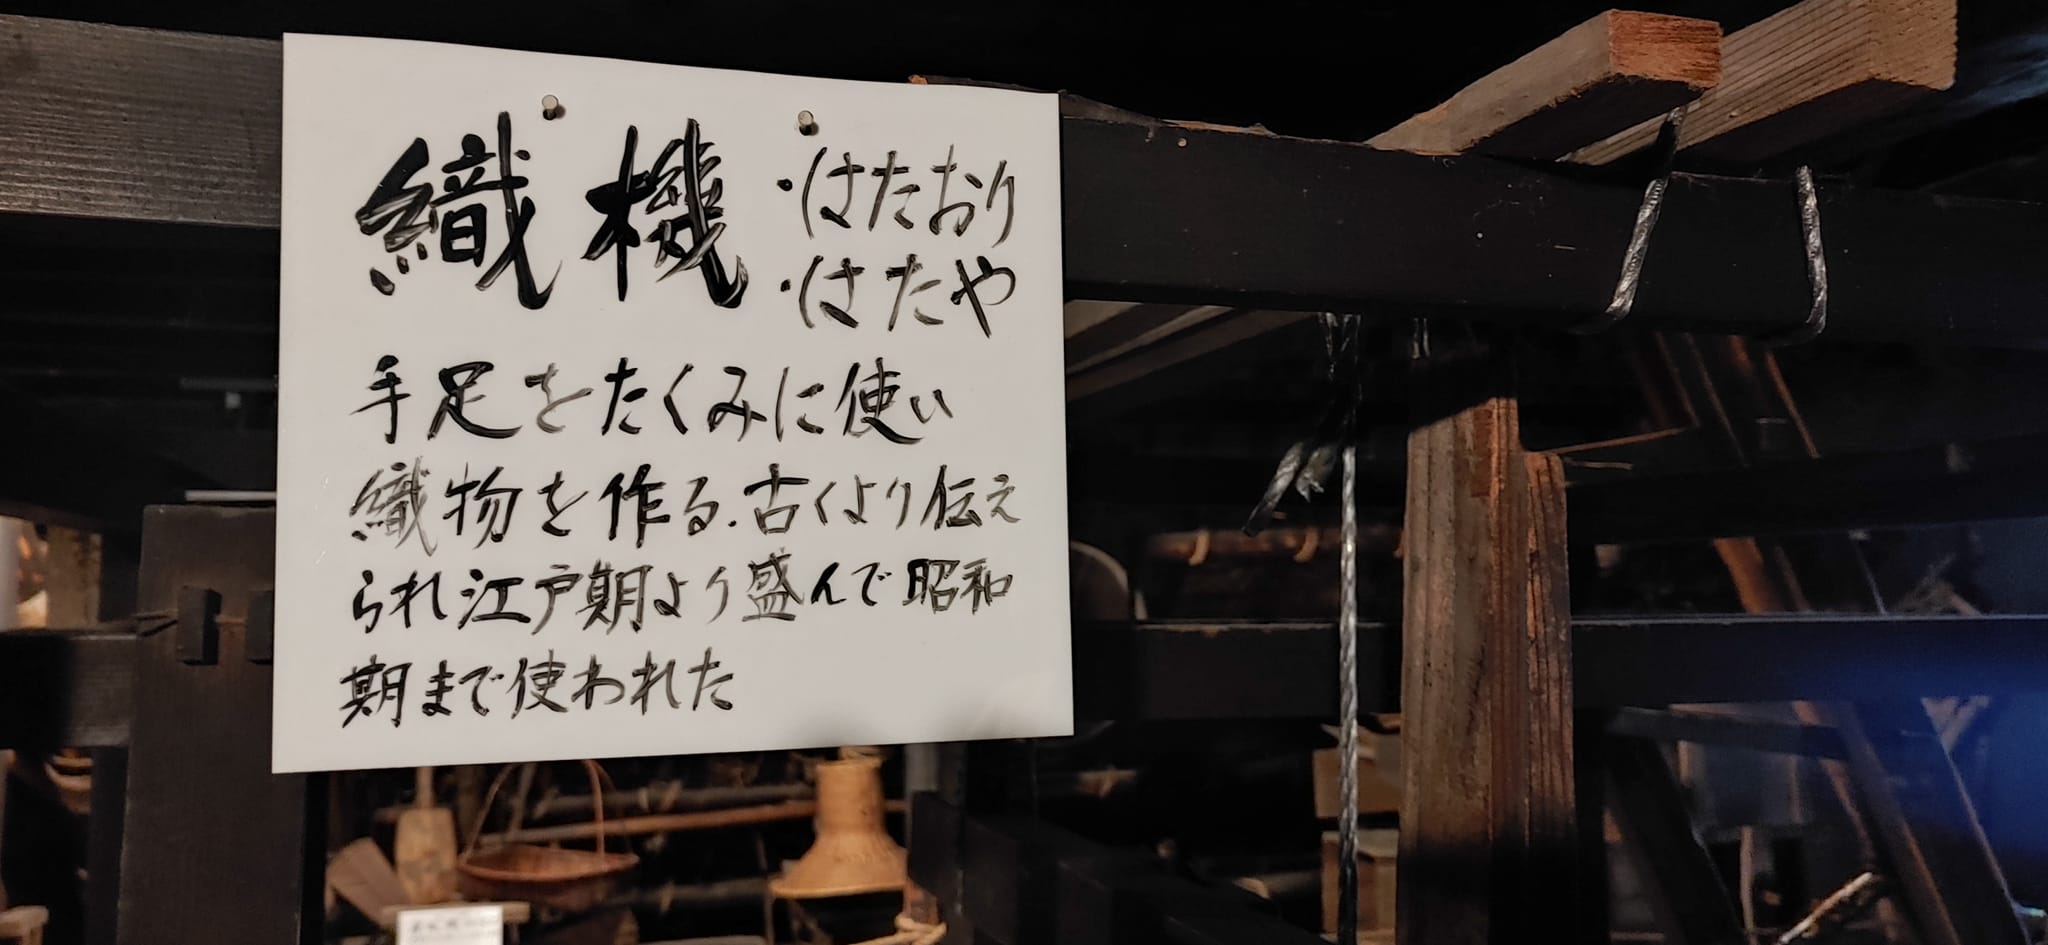 織機 ・はたおり
・はたや
手足をたくみに使い
織物を作る.古くより伝え
られ江戸期より盛んで昭和
期まで使われた